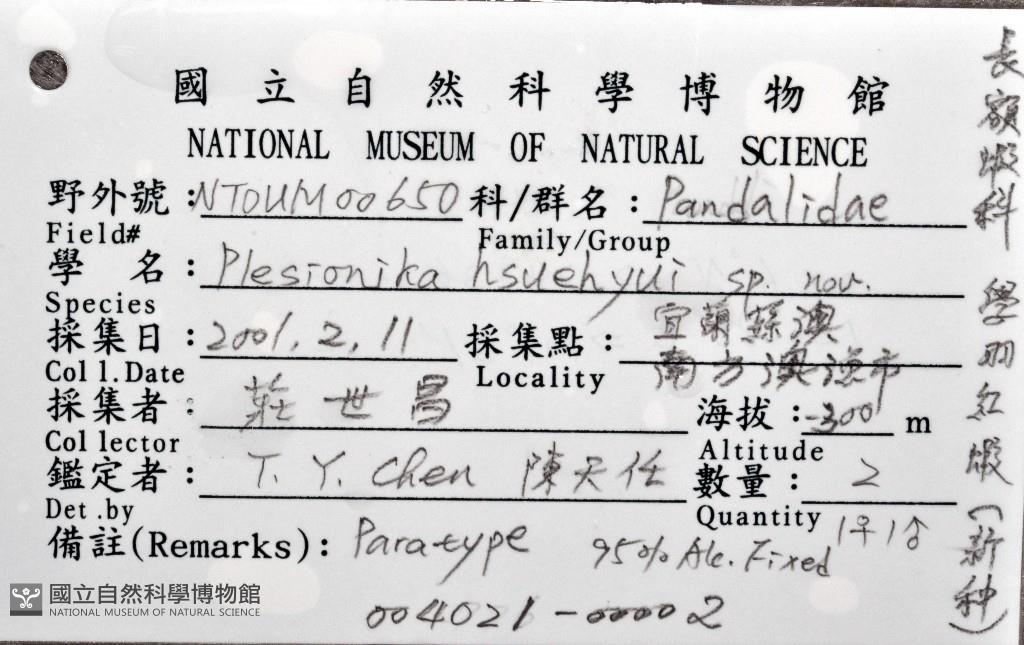 國立自然科學博物館
NATIONAL MUSEUM OF NATURAL SCIENCE
野外號:NTOUM00650 科/群名:Pandalidae
Field# Family/Group
學 名:Plesionika hsuehyui sp. nov.
Species
採集日:2001.2.11 採集點:宜蘭蘇澳
南方澳漁市
Coll.Date Locality
採集者:莊世昌 海拔:-300 m
Collector Altitude
鑑定者:T. Y. Chen 陳天任 數量:2
Det.by Quantity 1♀1♂
備註(Remarks):Paratype 95% Alc. Fixed
004021-00002
長額蝦科 學羽紅蝦(新種)
國立自然科學博物館
NATIONAL MUSEUM OF NATURAL SCIENCE